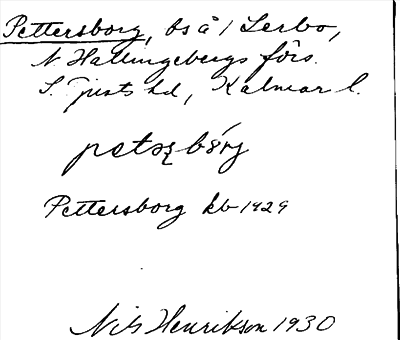 Pettersborg, bs å 1 Lerbo,
N Hallingebergs förs.
S. Tjusts hd, Kalmar l.
petsbórj
Pettersborg kb 1929
Nils Henrikson 1930